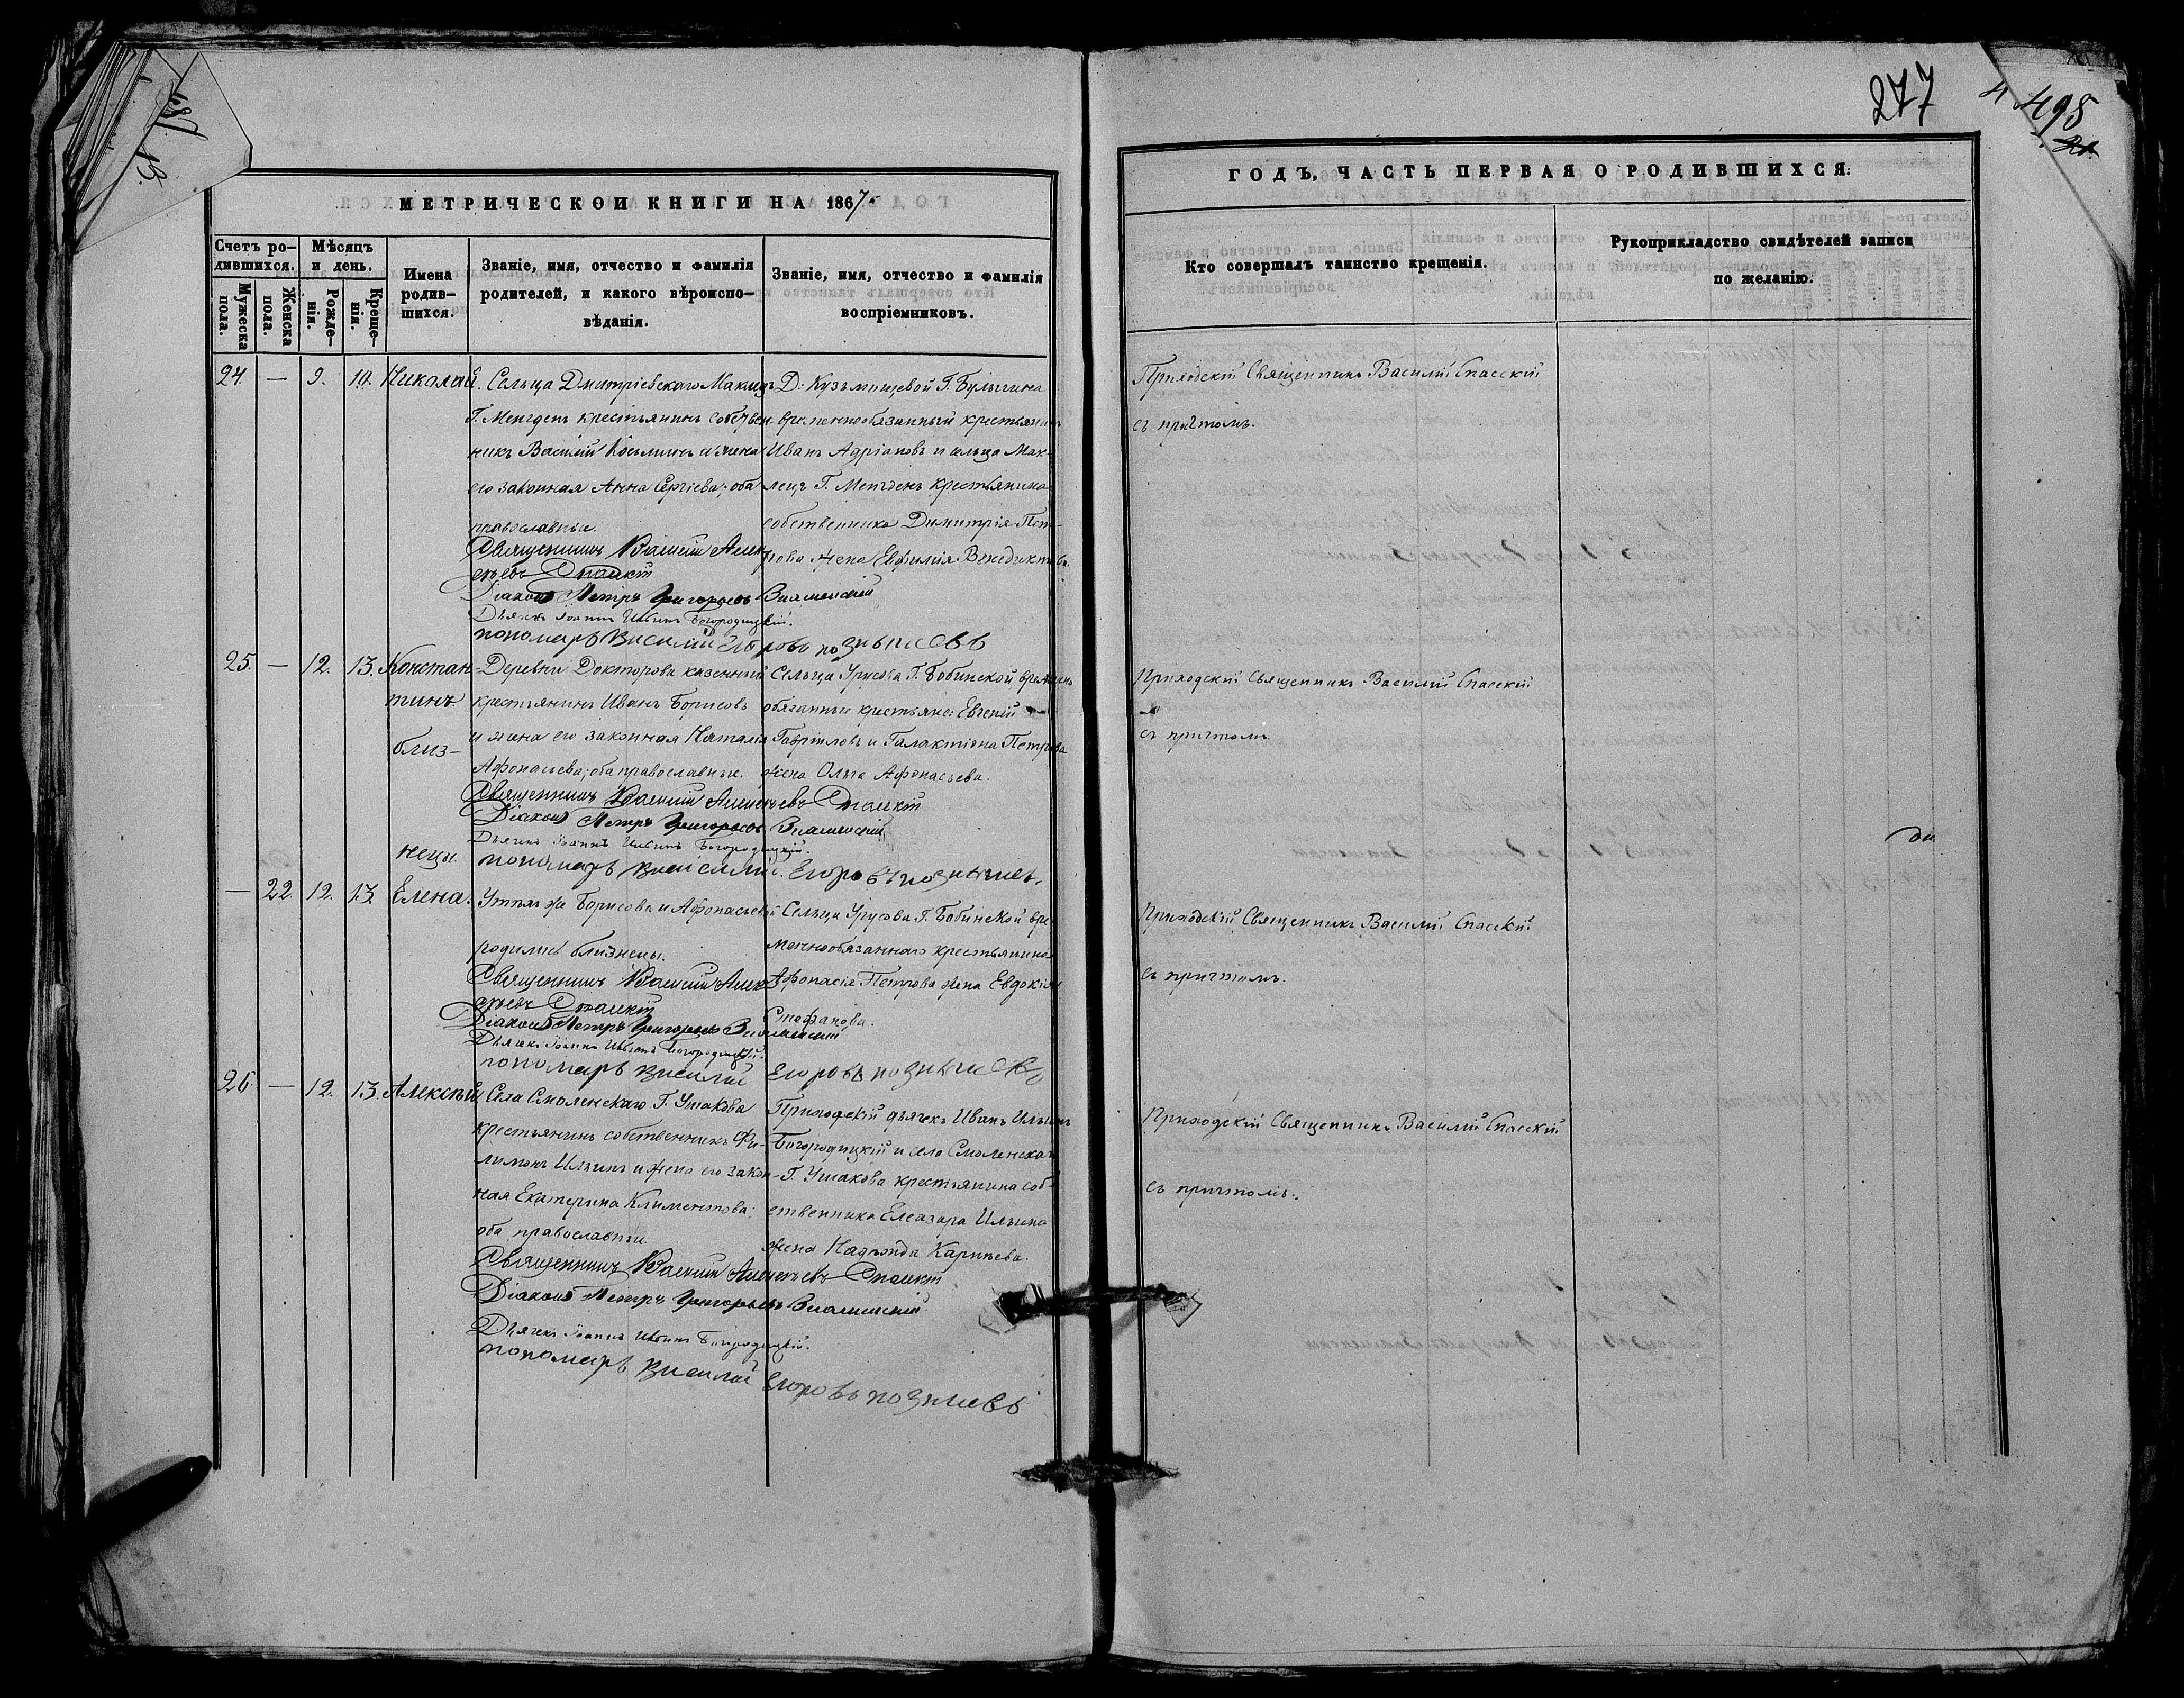 277
498
МЕТРИЧЕСКОИ КНИГИ НА 1867.
Счетъ родившихся.
Мужеска пола.
Женска пола.
Мѣсяцъ и день.
Рожденія.
Крещенія.
Имена родившихся.
Званіе, имя, отчество и фамилія
родителей, и какого вѣроиспо-
вѣданія.
Званіе, имя, отчество и фамилія
воспріемниковъ.
24. — 9. 10. Николай.
Сельца Дмитріевскаго Маклецъ
Г. Менгденъ крестьянинъ собствен-
никъ Василій Косьминъ и жена
его законная Анна Сергіева; оба
православные.
Священникъ Василій Алек
сѣевъ Спаскій
Діаконъ Петръ Григорьевъ Знаменскій
Дьячекъ Іоаннъ Ильинъ Богородицкій.
пономарь Василий Егоровъ
Д: Кузьмищевой Г. Булыгина
временнообязанный крестьянинъ
Иванъ Адріановъ и сельца Мак-
лецъ Г. Менгденъ крестьянина
собственника Димитрія Пет-
рова жена Евфимія Венедиктова.
25. — 12. 13. Констан-
тинъ
близ-
нецы.
Деревни Докторова казенный
крестьянинъ Иванъ Борисовъ
и жена его законная Наталія
Афонасьева; оба православные.
Священникъ Василій Алексѣевъ Спаскій
Діаконъ Петръ Григорьевъ Знаменскій
Дьячекъ Іоаннъ Ильинъ Богородицкій.
пономарь Василий Егоровъ
Сельца Урусова Г. Бобинской временно
обязанные крестьяне: Евгений
Гавриловъ и Галактіона Петрова
жена Ольга Афонасьева.
— 22. 12. 13. Елена.
У тѣхъ же Борисова и Афонасьевой
родились близнецы.
Священникъ Василій Алек
сѣевъ Спаскій
Діаконъ Петръ Григорьевъ Знаменскій
Дьячекъ Іоаннъ Ильинъ Богородицкій.
пономарь Василий Егоровъ
Сельца Урусова Г. Бобинской вре-
меннообязаннаго крестьянина
Афонасія Петрова жена Евдокія
Стефанова.
26. — 12. 13. Алексѣй
Села Смоленскаго Г. Ушакова
крестьянинъ собственникъ Фи-
лимонъ Ильинъ и жена его закон-
ная Екатерина Климентова;
оба православные.
Священникъ Василій Алексѣевъ Спаскій
Діаконъ Петръ Григорьевъ Знаменскій
Дьячекъ Іоаннъ Ильинъ Богородицкій.
пономарь Василий Егоровъ
Приходскій дьячекъ Иванъ Ильинъ
Богородицкій и села Смоленскаго
Г. Ушакова крестьянина соб-
ственника Елеазара Ильина
жена Надежда Карпъева.
ГОДЪ, ЧАСТЬ ПЕРВАЯ О РОДИВШИХСЯ:
Кто совершалъ таинство крещенія.
Рукоприкладство свидѣтелей записи
по желанію.
Приходскій Священникъ Василій Спасскій
съ причтомъ.
Приходскій Священникъ Василій Спасскій
съ причтомъ.
Приходскій Священникъ Василій Спасскій
съ причтомъ.
Приходскій Священникъ Василій Спасскій
съ причтомъ.